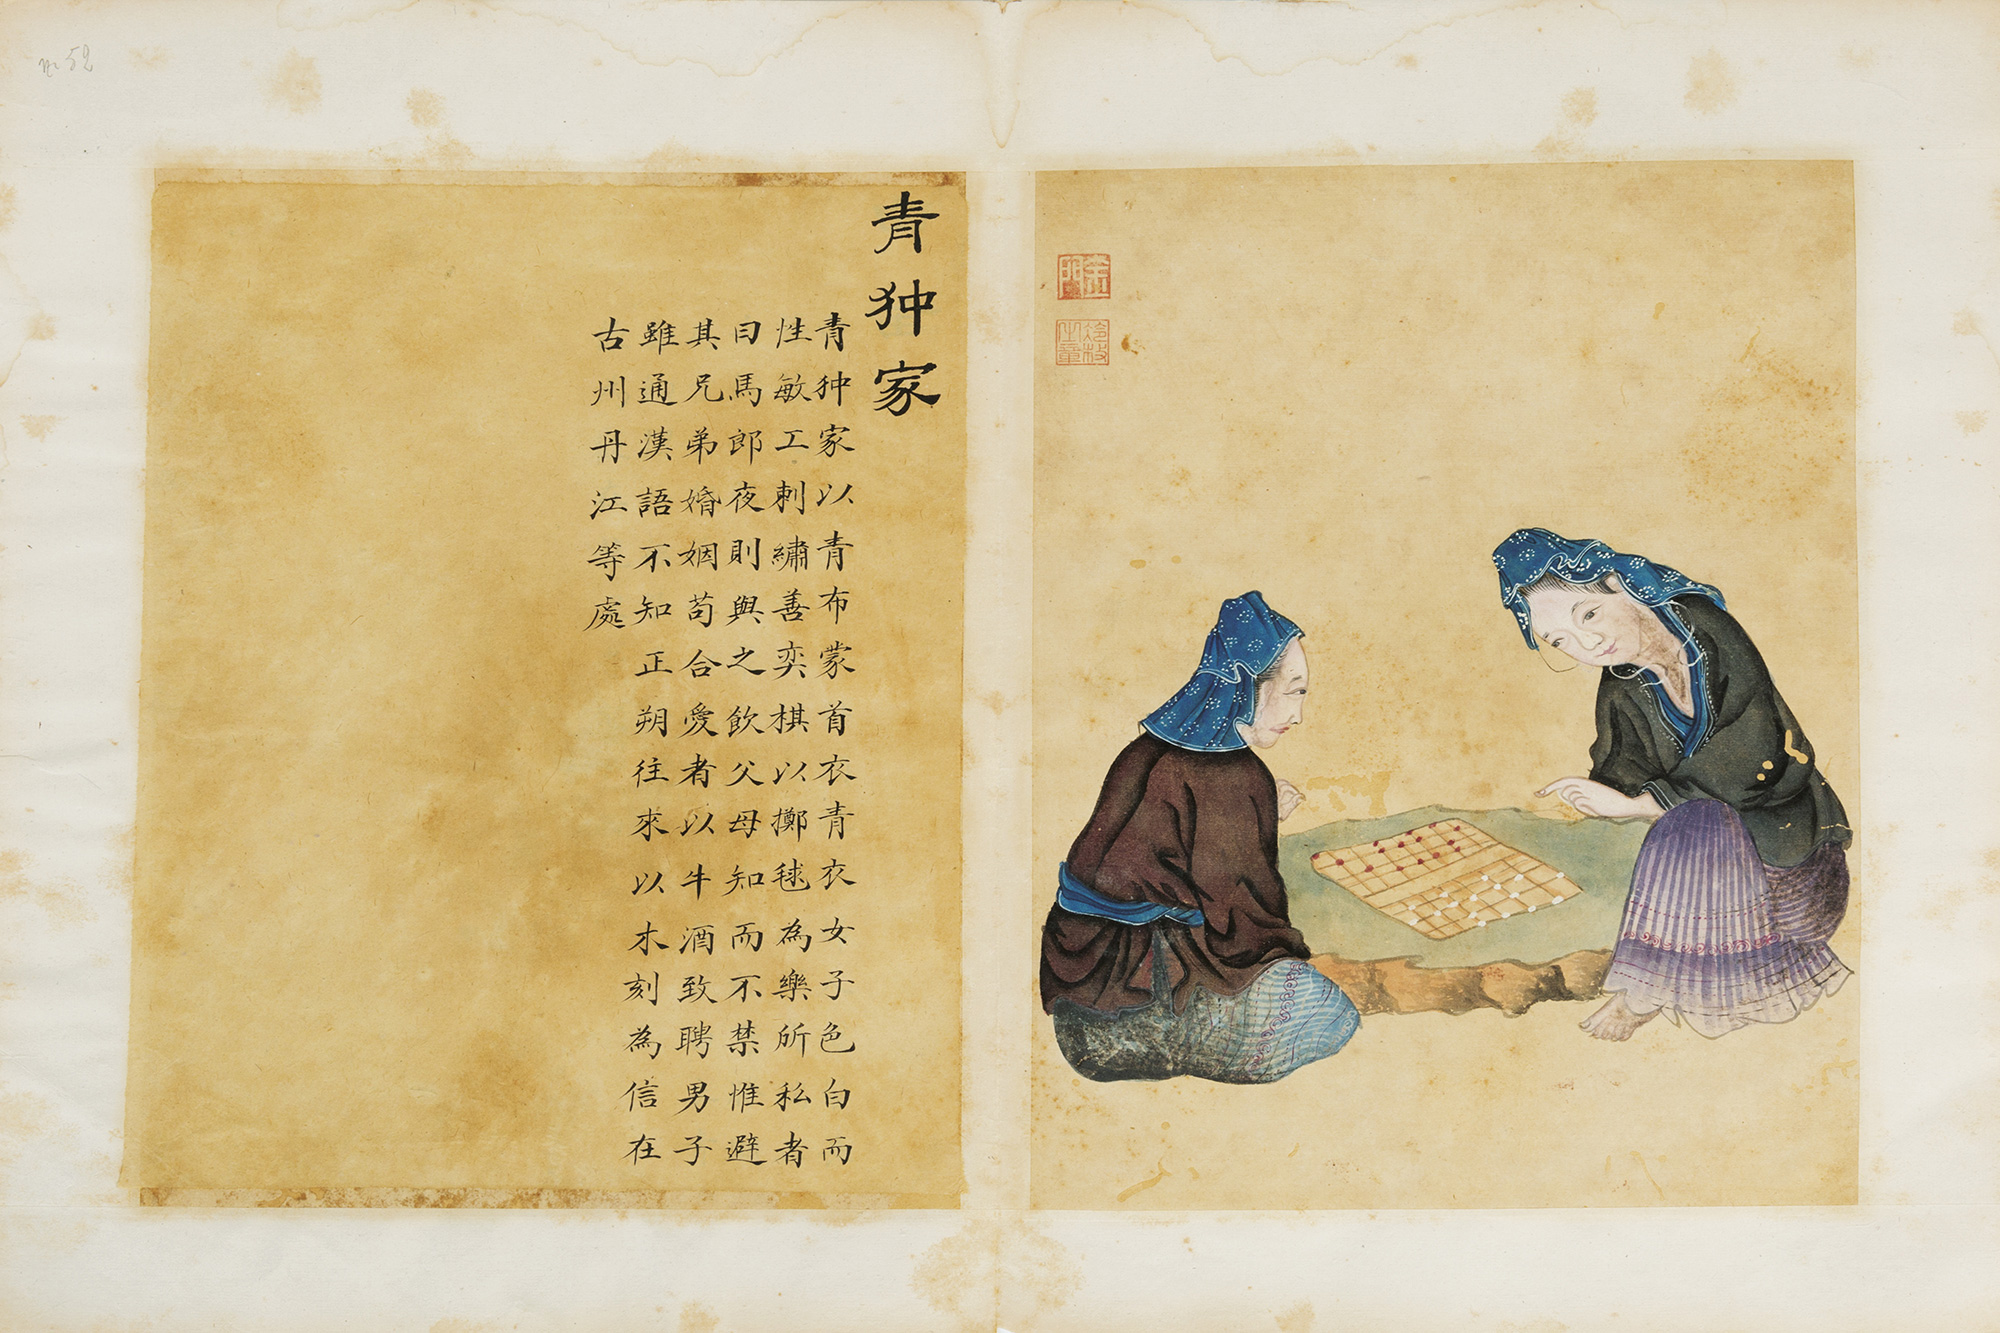 青狆家
青狆家以青布蒙首衣青衣女子色白而
性敏工刺繡善奕棋以擲毬為樂所私者
曰馬郎夜則與之飲父母知而不禁惟避
其兄弟婚姻苟合愛者以牛酒致聘男子
雖通漢語不知正朔往來以木刻為信在
古州丹江等處